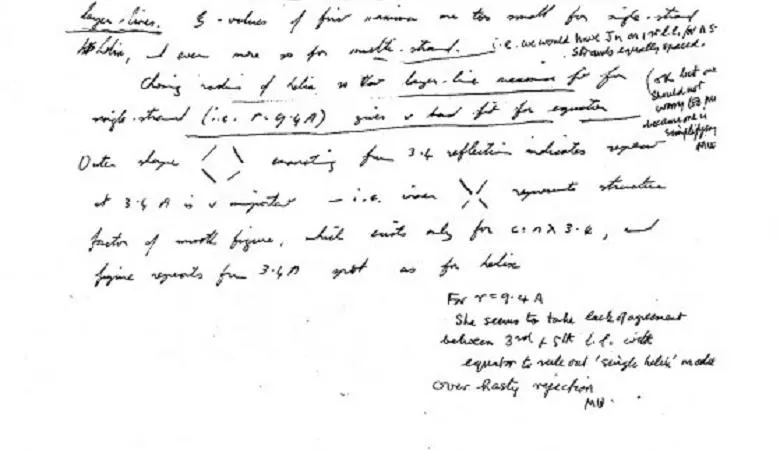 layer-lines. ξ-values of first maxima are too small for single-strand
helix, & even more so for multi-strand. i.e. we would have Jn on 1st l.l. for n
strands equally spaced.
Choosing radius of helix so that layer-line maxima fit for
single-strand (i.e. r=9.4A) gives v bad fit for equator
(Oh but one
should not
worry
because one is
simplifying
Outer shape connecting from 3.4 reflection indicates repeat
at 3.4 A is v important — i.e. inner represents structure
factor of smooth figure, which exists only for c=n×3.4, and
figure repeats from 3.4A spot as for helix
For r=9.4A
She seems to take lack of agreement
between 3rd & 5th l.l. with
equator to rule out 'single helix' model
over hasty rejection